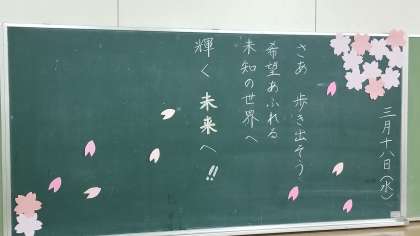 三月十八日(水)
さあ 歩き出そう
希望あふれる
未知の世界へ
輝く未来へ!!